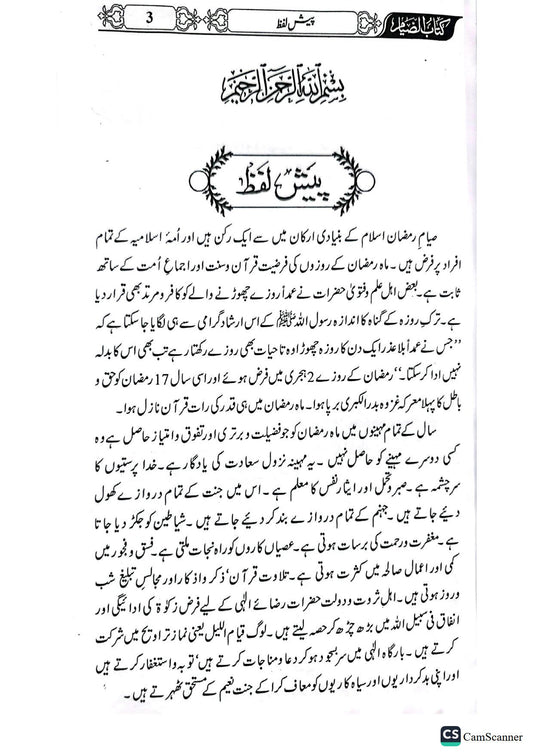 کتاب الصیام
پیش لفظ
3
بسم اللہ الرحمن الرحیم
پیش لفظ
صیامِ رمضان اسلام کے بنیادی ارکان میں سے ایک رکن ہیں اور اُمۃ اسلامیہ کے تمام
افراد پر فرض ہیں۔ ماہ رمضان کے روزوں کی فرضیت قرآن وسنت اور اجماعِ اُمت کے ساتھ
ثابت ہے۔ بعض اہل علم وفتویٰ حضرات نے عمداً روزے چھوڑنے والے کو کافر و مرتد بھی قرار دیا
ہے۔ ترکِ روزہ کے گناہ کا اندازہ رسول اللہ ﷺ کے اس ارشاد گرامی سے ہی لگایا جا سکتا ہے کہ
’’جس نے عمداً بلا عذر ایک دن کا روزہ چھوڑا وہ تاحیات بھی روزے رکھتا رہے تب بھی اس کا بدلہ
نہیں ادا کر سکتا۔‘‘ رمضان کے روزے 2 ہجری میں فرض ہوئے اور اسی سال 17 رمضان کو حق و
باطل کا پہلا معرکہ غزوہ بدر الکبریٰ برپا ہوا۔ ماہ رمضان میں ہی قدر کی رات قرآن نازل ہوا۔
سال کے تمام مہینوں میں ماہ رمضان کو جو فضیلت و برتری اور تفوق و امتیاز حاصل ہے وہ
کسی دوسرے مہینے کو حاصل نہیں۔ یہ مہینہ نزول سعادت کی یادگار ہے۔ خدا پرستیوں کا
سرچشمہ ہے۔ صبر و تحمل اور ایثار نفس کا معلم ہے۔ اس میں جنت کے تمام دروازے کھول
دیئے جاتے ہیں۔ جہنم کے تمام دروازے بند کر دیئے جاتے ہیں۔ شیاطین کو جکڑ دیا جاتا
ہے۔ مغفرت و رحمت کی برسات ہوتی ہے۔ عصیاں کاروں کو راہ نجات ملتی ہے۔ فسق و فجور میں
کمی اور اعمال صالحہ میں کثرت ہوتی ہے۔ تلاوت قرآن‘ ذکر واذکار اور مجالس تبلیغ شب
وروز ہوتی ہیں۔ اہل ثروت و دولت حضرات رضائے الٰہی کے لیے فرض زکوٰۃ کی ادائیگی اور
انفاق فی سبیل اللہ میں بڑھ چڑھ کر حصہ لیتے ہیں۔ لوگ قیام اللیل یعنی نماز تراویح میں شرکت
کرتے ہیں۔ بارگاہ الٰہی میں سربسجود ہو کر دعا و مناجات کرتے ہیں‘ توبہ و استغفار کرتے ہیں
اور اپنی بدکرداریوں اور سیاہ کاریوں کو معاف کرا کے جنت نعیم کے مستحق ٹھہرتے ہیں۔
CS CamScanner